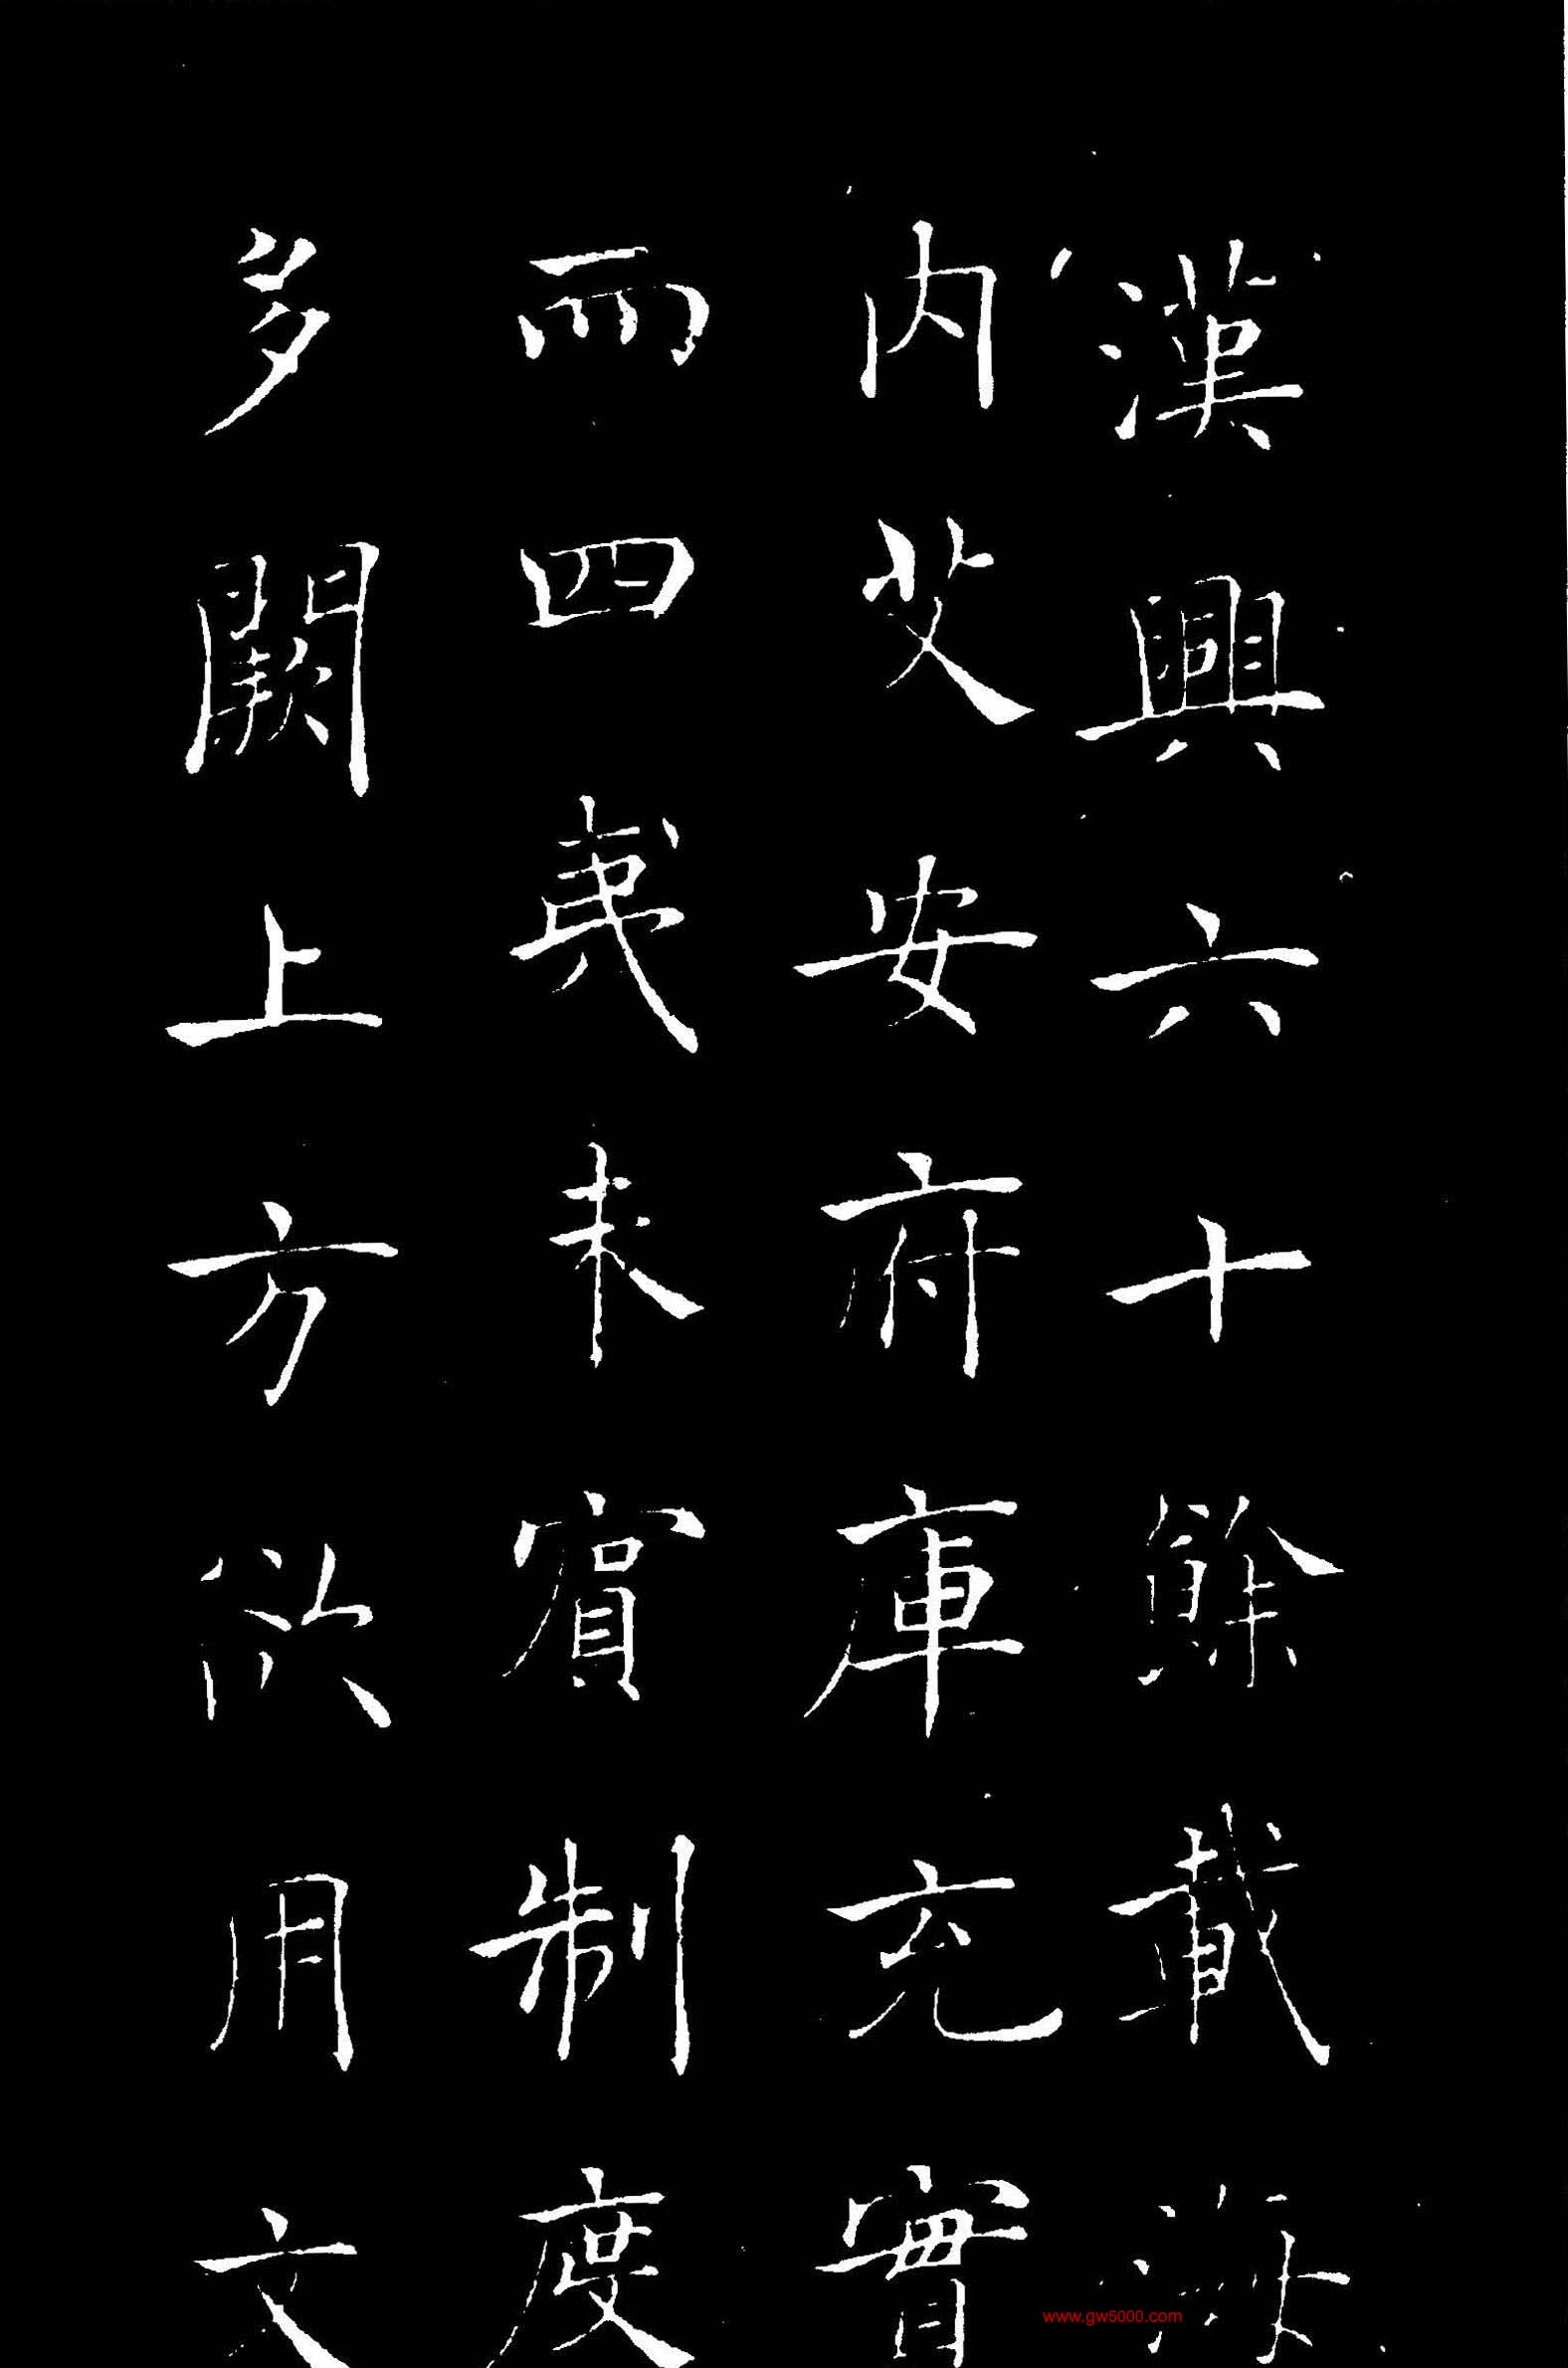 漢興六十餘載海
內艾安府庫充實
而四夷未賓制度
多闕上方欲用文
www.gw5000.com